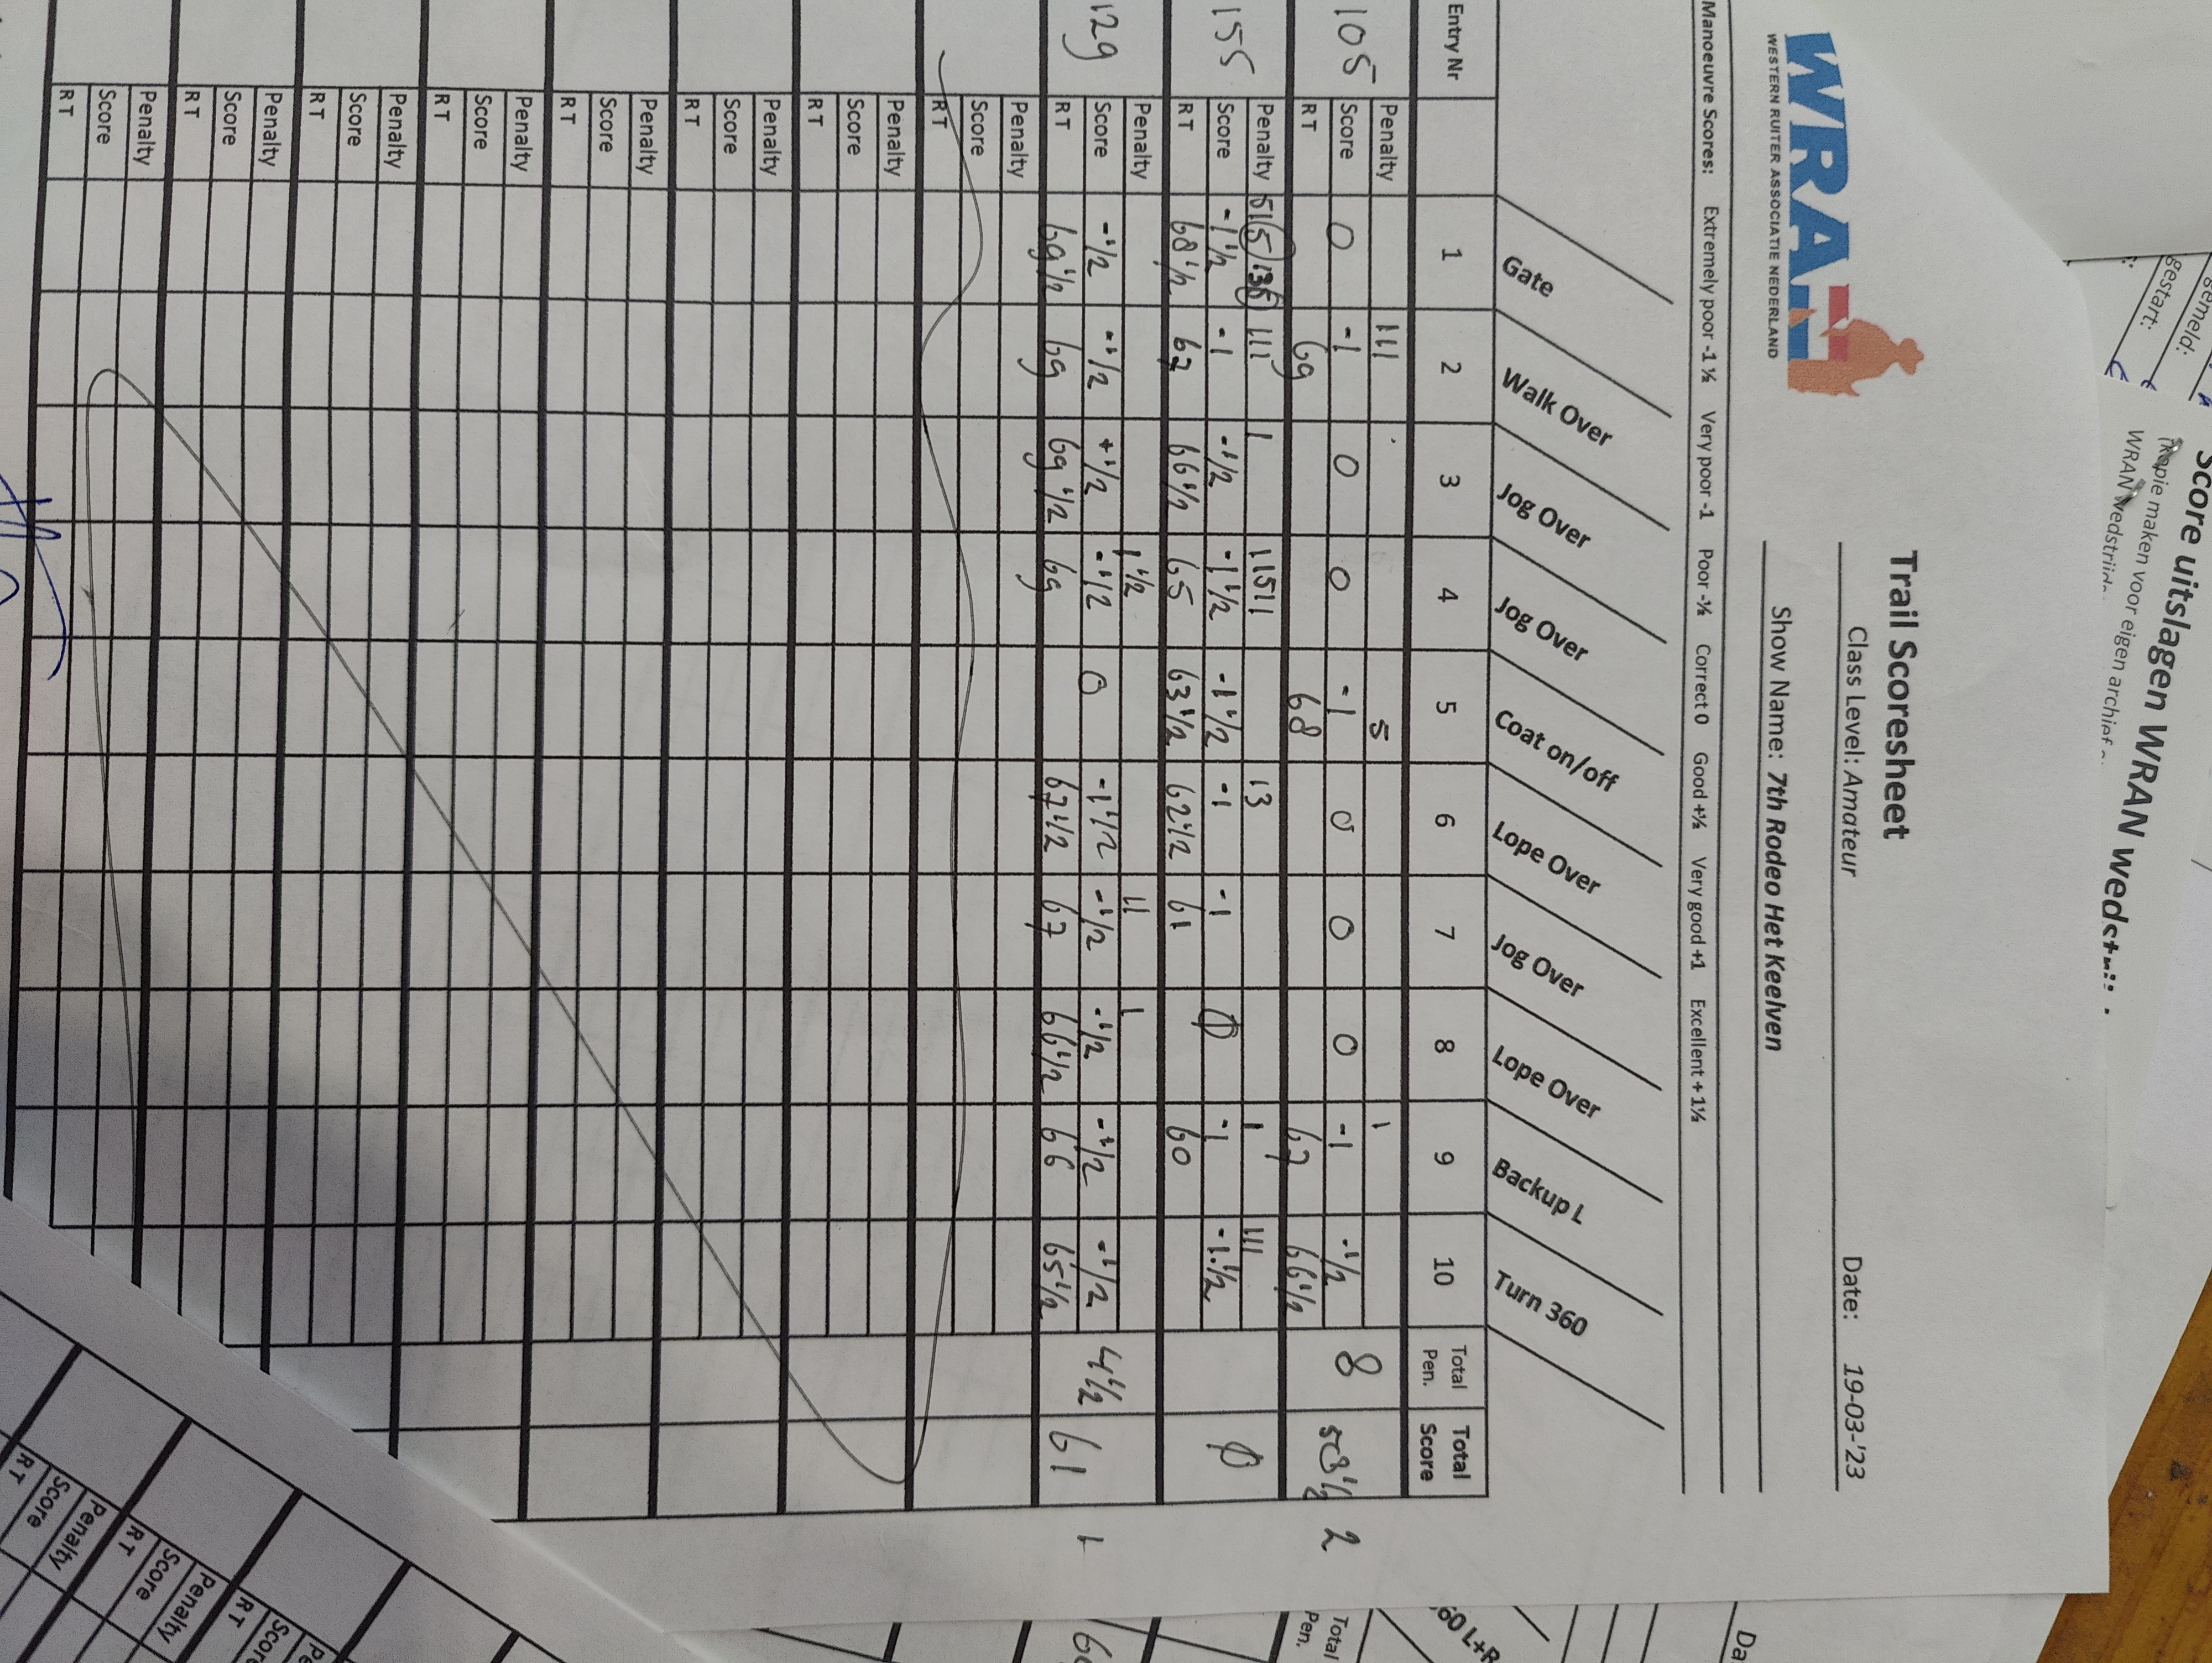 WRAN
WESTERN RUITER ASSOCIATIE NEDERLAND
Trail Scoresheet
Class Level: Amateur Date: 19-03-'23
Show Name: 7th Rodeo Het Keelven
Manoeuvre Scores: Extremely poor -1 ½ Very poor -1 Poor -½ Correct 0 Good +½ Very good +1 Excellent +1½
Gate Walk Over Jog Over Jog Over Coat on/off Lope Over Jog Over Lope Over Backup L Turn 360
Entry Nr 1 2 3 4 5 6 7 8 9 10 Total Pen. Total Score
Penalty 111 5 1
105 Score 0 -1 0 0 -1 0 0 0 -1 -1/2 8 58 1/2 2
RT 69 68 67 66 1/2
Penalty 111 1 11511 13 1 111
155 Score -1 1/2 -1 -1/2 -1 1/2 -1 1/2 -1 -1 0 -1 -1 1/2 0
RT 68 1/2 67 66 1/2 65 63 1/2 62 1/2 61 60
Penalty 1 1/2 11 1
129 Score -1/2 -1/2 +1/2 -1/2 0 -1 1/2 -1/2 -1/2 -1/2 -1/2 4 1/2 61 1
RT 69 1/2 69 69 1/2 69 67 1/2 67 66 1/2 66 65 1/2
Penalty
Score
RT
Penalty
Score
RT
Penalty
Score
RT
Penalty
Score
RT
Penalty
Score
RT
Penalty
Score
RT
Penalty
Score
RT
Penalty
Score
RT
Score uitslagen WRAN
maken voor eigen archief
WRAN
gemeld:
gestart:
Da
60 L+R
Total
Pen.
Penalty
Score
RT
Penalty
Score
RT
RT